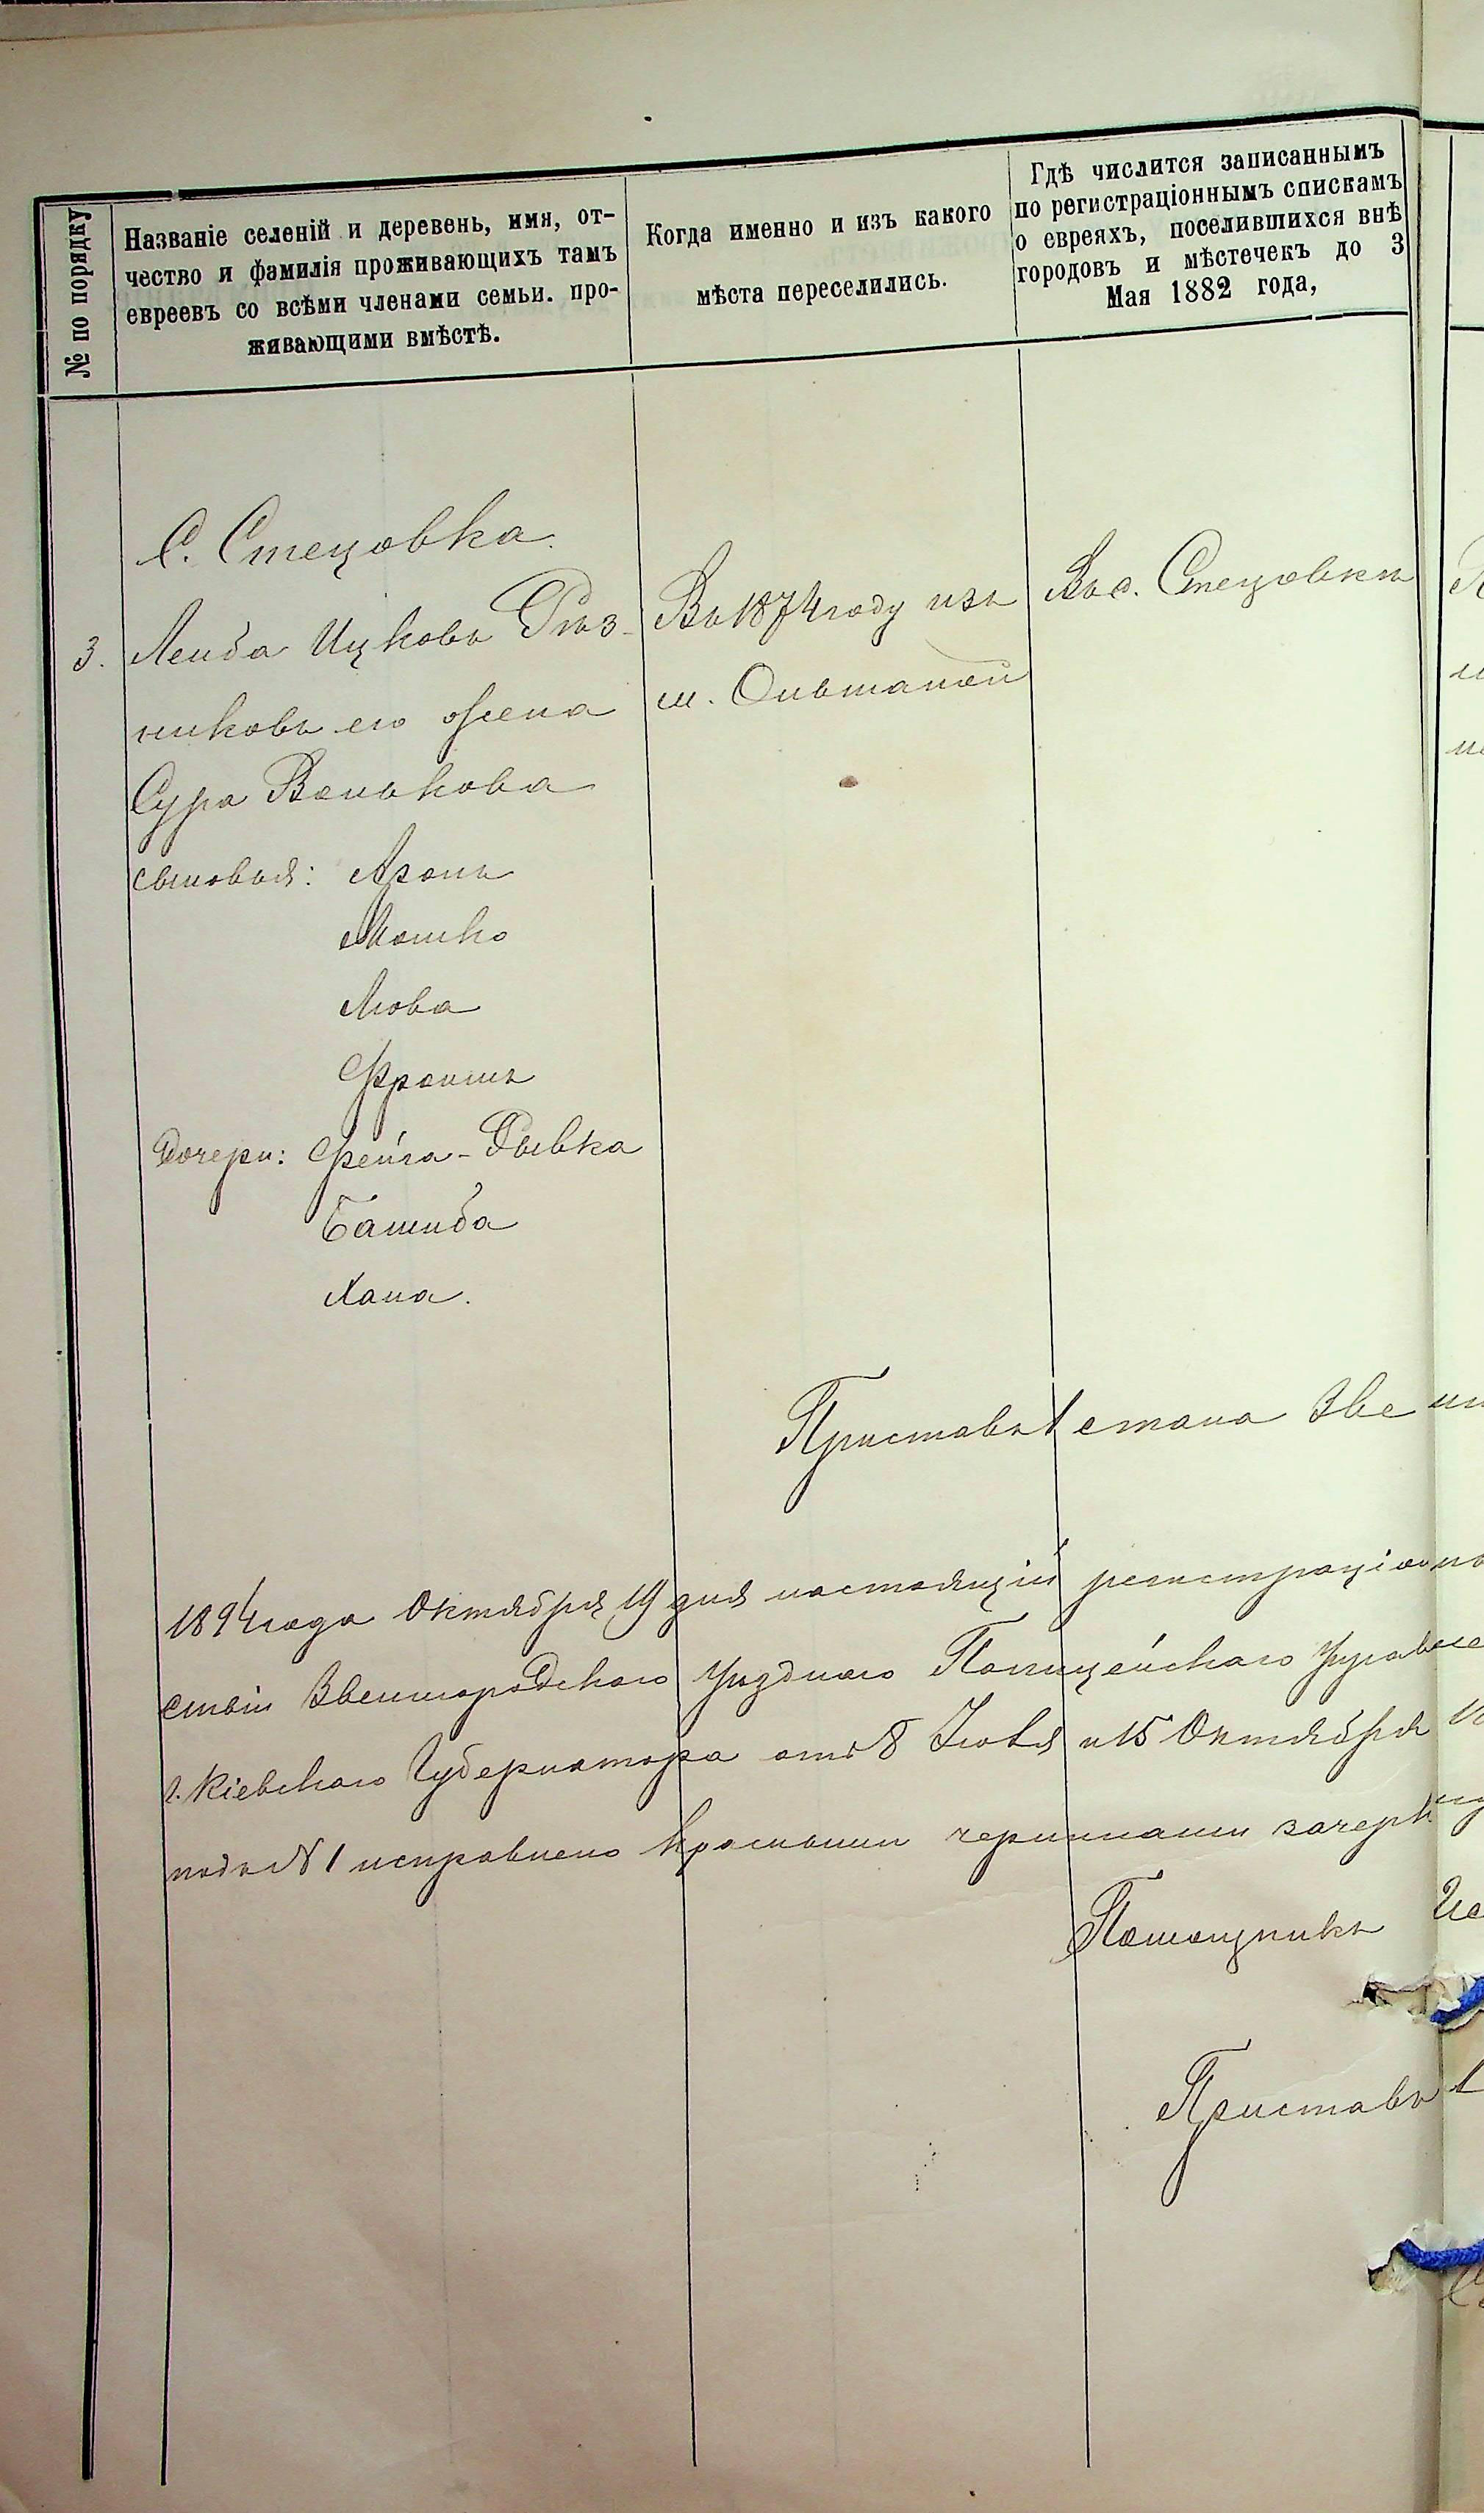 № по порядку
Названіе селеній и деревень, имя, от-
чество и фамилія проживающихъ тамъ
евреевъ со всѣми членами семьи. про-
живающими вмѣстѣ.
Когда именно и изъ какого
мѣста переселились.
Гдѣ числится записаннымъ
по регистраціоннымъ спискамъ
о евреяхъ, поселившихся внѣ
городовъ и мѣстечекъ до 3
Мая 1882 года,
С. Стецовка.
3.
Лейба Ицковъ Рѣз-
никовъ его жена
Сура Волькова
сыновья: Аронъ
Мошко
Лейба
Фроимъ
Дочери: Фейга-Рывка
Башиба
Хана.
Въ 1874 году изъ
м. Ольшаной
Въ с. Стецовкѣ
Приставъ 1 стана Зве
1894 года Октября 19 дня настоящій регистраціон
ствіи Звенигородского Уѣзднаго Полицейскаго Управле
г. Кіевского Губернатора отъ 8 Іюля и 15 Октября
подъ № 1 исправлено красными чернилами зачерк
Помощникъ Ис
Приставъ 1